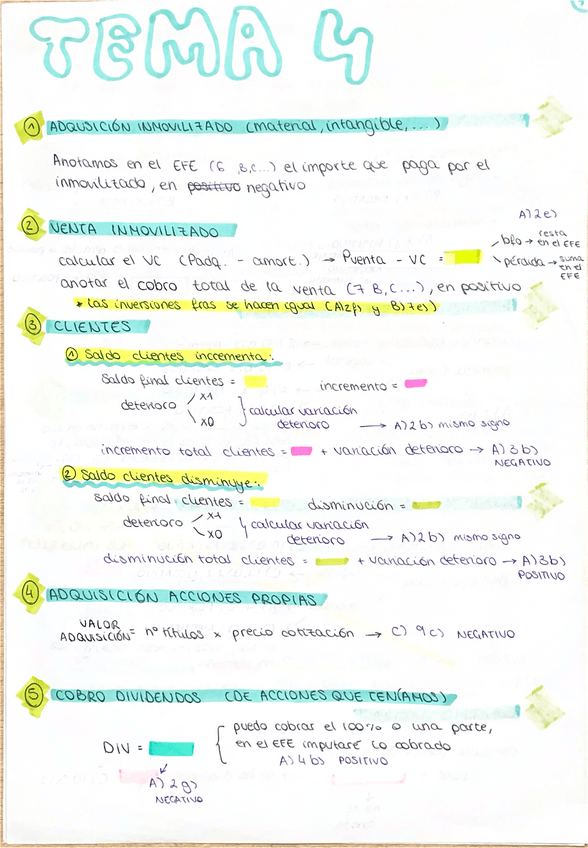 TEMA 4
① ADQUSICIÓN INMOVILIZADO (material, intangible, ...)
Anotamos en el EFE (6 B,C...) el importe que paga por el
inmovilizado, en positivo negativo
② VENTA INMOVILIZADO
A)2e)
calcular el VC (Padq. - amort.) → Pventa - VC =
bfo → resta en el EFE
pérdida → suma en el EFE
anotar el cobro total de la venta (7 B, C...), en positivo
* las inversiones fras se hacen igual (A)2f) y B)7e))
③ CLIENTES
① Saldo clientes incrementa:
Saldo final clientes = incremento =
deterioro X1 X0 } calcular variación
deterioro → A)2b) mismo signo
incremento total clientes = + variación deterioro → A)3b)
NEGATIVO
② Saldo clientes disminuye:
saldo final clientes = disminución =
deterioro X1 X0 } calcular variación
deterioro → A)2b) mismo signo
disminución total clientes = + variación deterioro → A)3b)
POSITIVO
④ ADQUISICIÓN ACCIONES PROPIAS
VALOR
ADQUISICIÓN = nº títulos x precio cotización → C) 9c) NEGATIVO
⑤ COBRO DIVIDENDOS (DE ACCIONES QUE TENÍAMOS)
puedo cobrar el 100% o una parte,
DIV = { en el EFE imputaré lo cobrado
A)4b) POSITIVO
A) 2g)
NEGATIVO